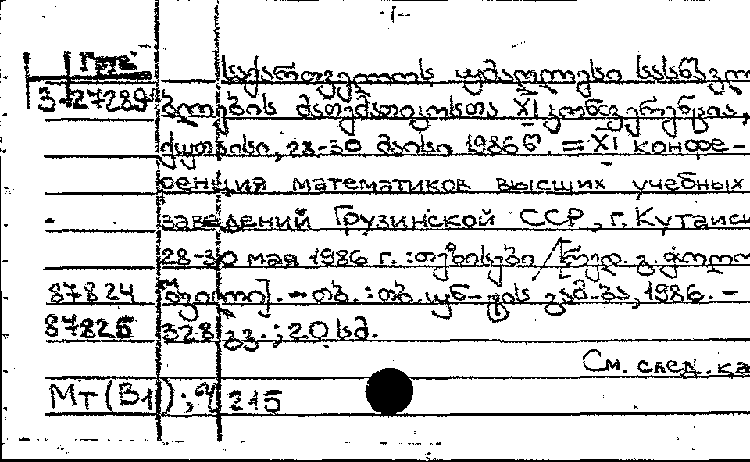 -1-
Груз
საქართველოს უმაღლესი სასწავლ
3-27289 ბლების მათემატიკოსთა XI კონფერენცია,
ქუთაისი, 28-30 მაისი 1986 წ. = XI конфе-
ренция математиков высших учебных
заведений Грузинской ССР, г. Кутаиси
28-30 мая 1986 г. : თეზისები / [რედ. გ.
87824 თბ. : თბ. უნ-ტის გამ-ბა, 1986. -
87825 328 გვ. ; 20 სმ.
См. след. ка
Мт (В1) ; 215